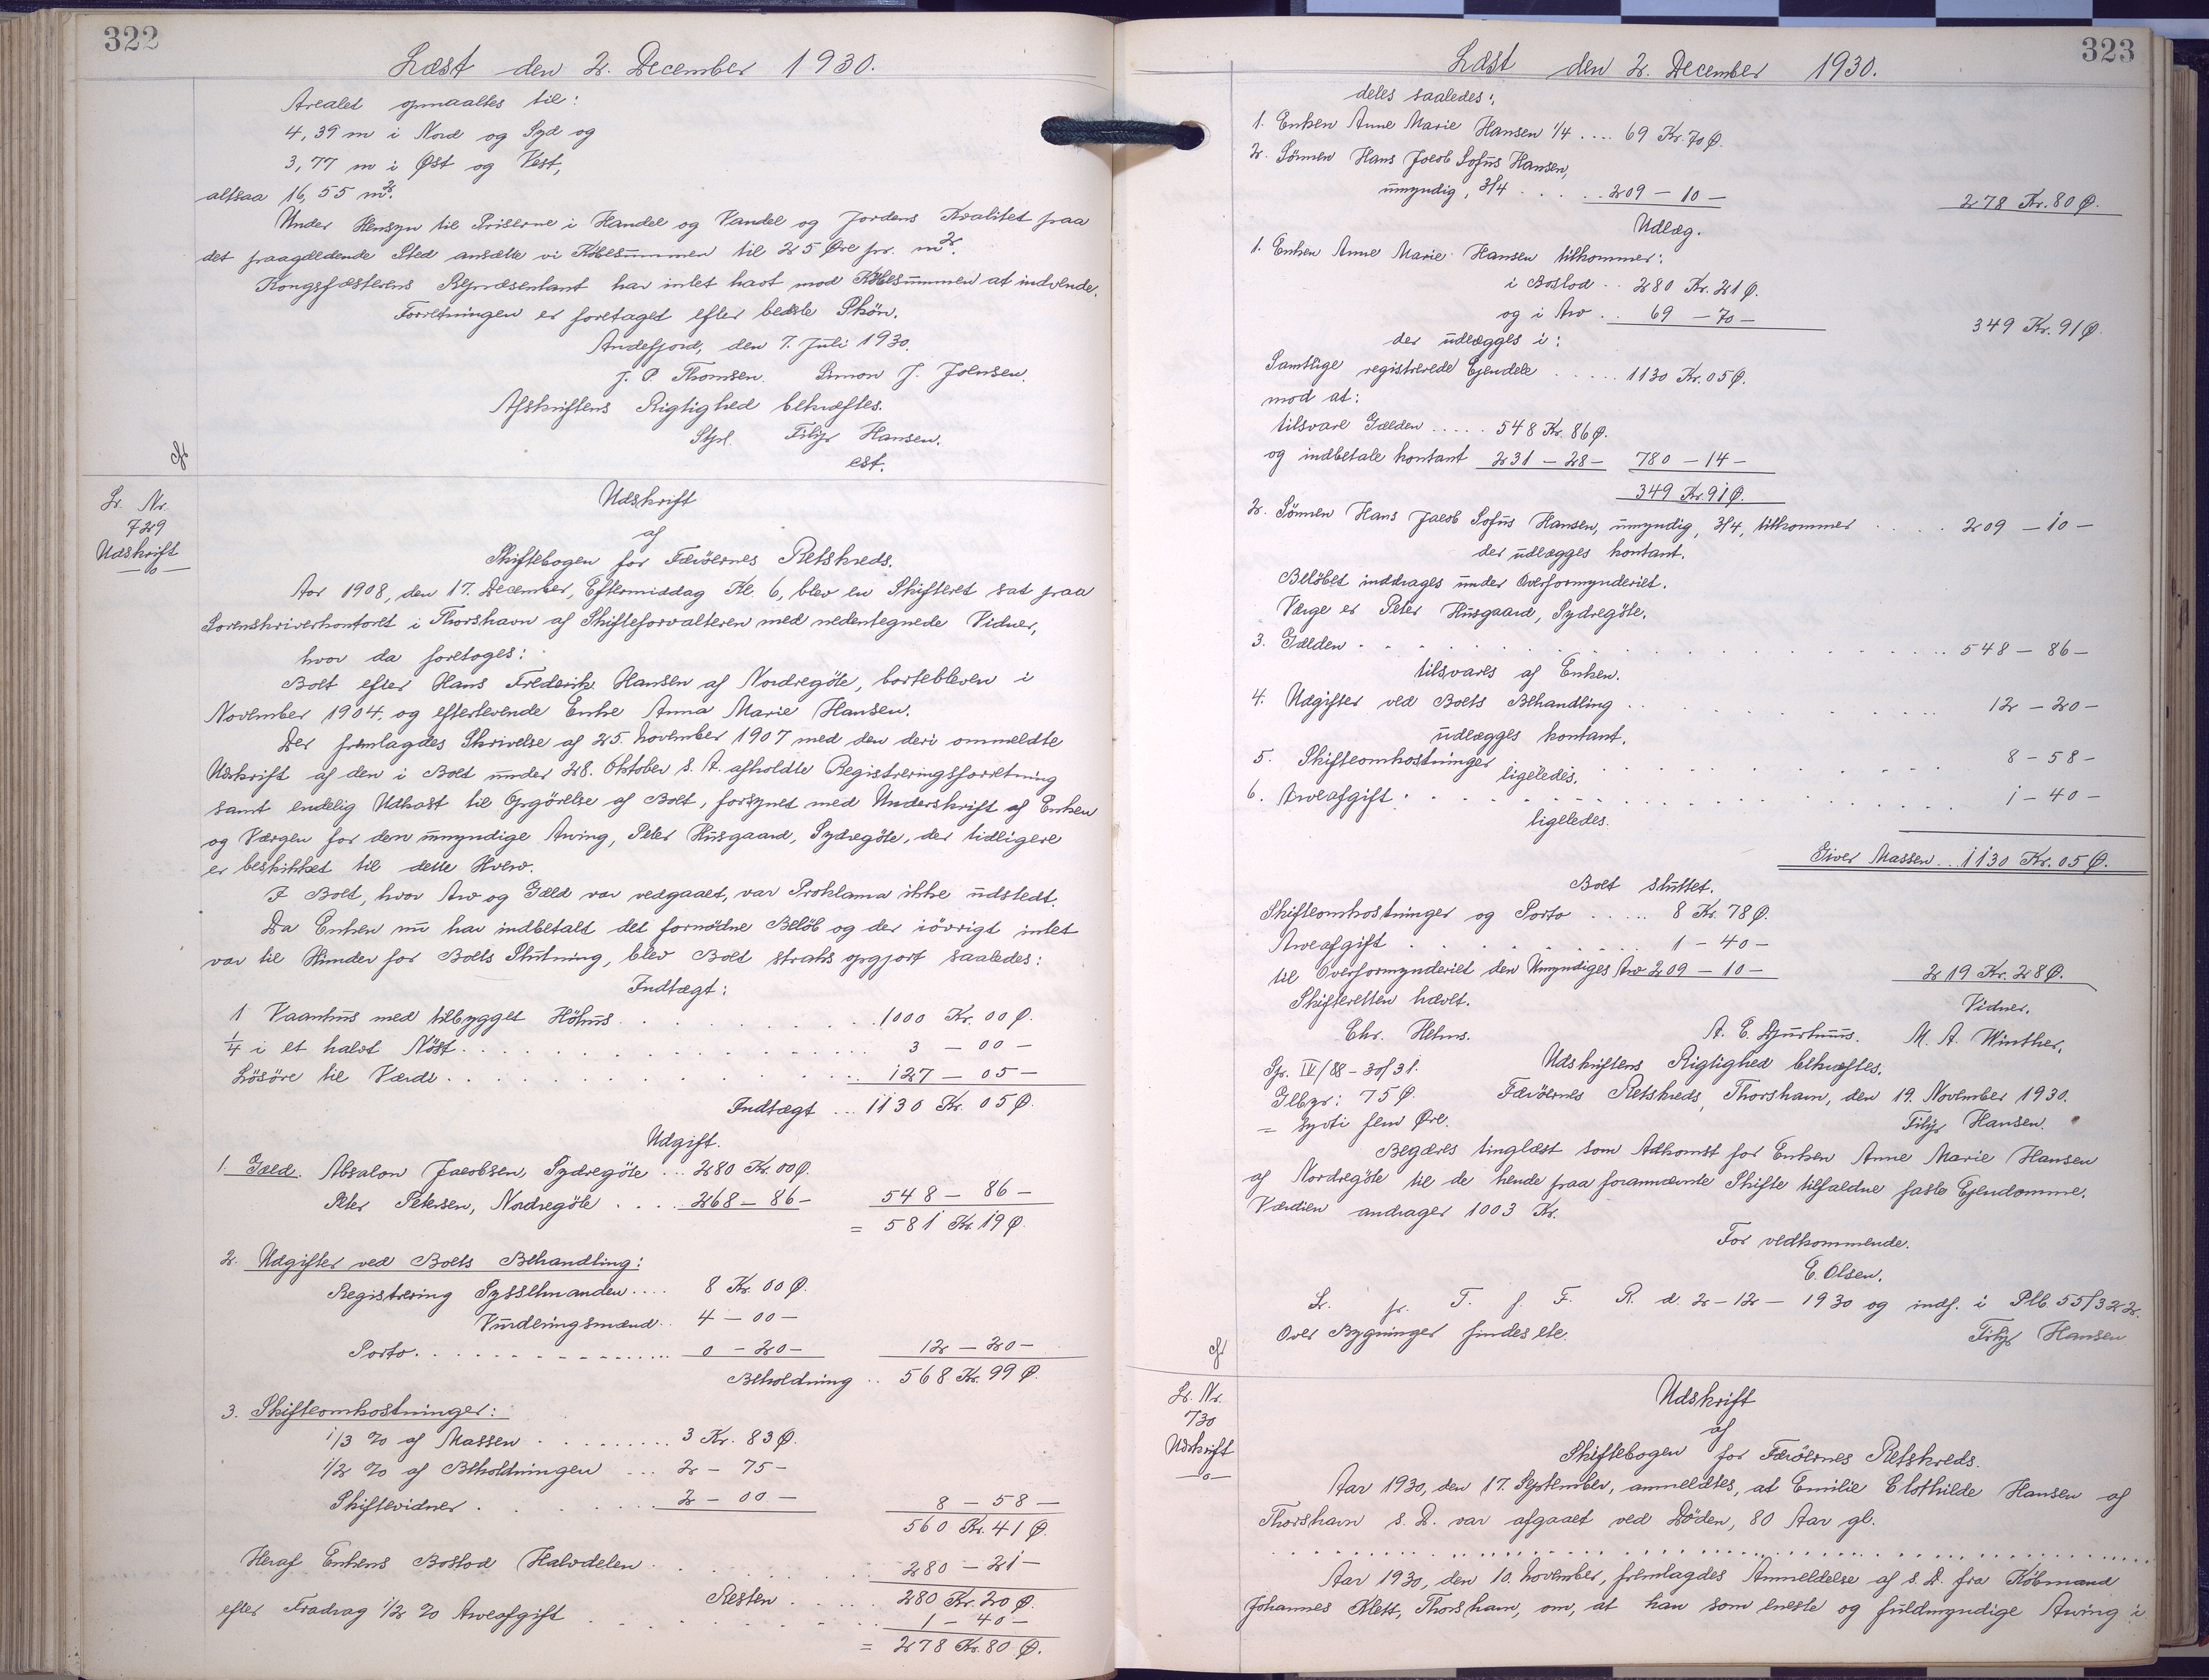 322
Læst den 2. December 1930.
Arealet opmaaltes til:
4,39 m i Nord og Syd og
3,77 m i Øst og Vest,
altsaa 16,55 m².
Under Hensyn til Priserne i Handel og Vandel og Jordens Kvalitet paa
det paagældende Sted ansætte vi Købesummen til 25 Øre pr. m².
Kongsfæsterens Repræsentant har intet havt mod Købesummen at indvende.
Forretningen er foretaget efter bedste Skøn.
Andefjord, den 7. Juli 1930.
J. P. Thomsen. Simon J. Joensen.
Afskriftens Rigtighed bekræftes.
Stpl. Filip Hansen.
cst.
cfr
Lr. Nr.
729
Udskrift
—o—
Udskrift
af
Skiftebogen for Færöernes Retskreds.
Aar 1908, den 17. December, Eftermiddag Kl. 6, blev en Skifteret sat paa
Sorenskriverkontoret i Thorshavn af Skifteforvalteren med nedentegnede Vidner,
hvor da foretoges:
Boet efter Hans Frederik Hansen af Nordregöte, bortebleven i
November 1904. og efterlevende Enke Anna Marie Hansen.
Der fremlagdes Skrivelse af 25. November 1907 med den deri ommeldte
Udskrift af den i Boet under 28. Oktober s. A. afholdte Registreringsforretning
samt endelig Udkast til Opgörelse af Boet, forsynet med Underskrift af Enken
og Værgen for den umyndige Arving, Peter Husgaard, Sydregöte, der tidligere
er beskikket til dette Hverv.
I Boet, hvor Arv og Gæld var vedgaaet, var Proklama ikke udstedt.
Da Enken nu har indbetalt det fornødne Belöb og der iövrigt intet
var til Hinder for Boets Slutning, blev Boet straks opgjort saaledes:
Indtægt:
1 Vaanhus med tilbygget Höhus . . . . . . . . 1000 Kr. 00 Ø.
1/4 i et halvt Nöst . . . . . . . . 3 — 00 —
Lösöre til Værdi . . . . . . . . 127 — 05 —
Indtægt ... 1130 Kr. 05 Ø.
Udgift.
1. Gæld. Absalon Jacobsen, Sydregöte ... 280 Kr. 00 Ø.
Peter Petersen, Nordregöte . . . . 268 — 86 — 548 — 86 —
= 581 Kr. 19 Ø.
2. Udgifter ved Boets Behandling:
Registrering Sysselmanden .... 8 Kr. 00 Ø.
Vurderingsmænd .. 4 — 00 —
Porto . . . . . . . . 0 — 20 — 12 — 20 —
Beholdning .. 568 Kr. 99 Ø.
3. Skifteomkostninger:
1/3 % af Massen . . . . . . . . 3 Kr. 83 Ø.
1/2 % af Beholdningen ... 2 — 75 —
Skiftevidner . . . . . . 2 — 00 — 8 — 58 —
560 Kr. 41 Ø.
Heraf Enkens Boslod Halvdelen . . . . . . 280 — 21 —
Resten . . . . . 280 Kr. 20 Ø.
efter Fradrag 1/2 % Arveafgift . . . . . . . 1 — 40 —
= 278 Kr. 80 Ø.
323
Læst den 2. December 1930.
deles saaledes:
1. Enken Anne Marie Hansen 1/4 .... 69 Kr. 70 Ø.
2. Sönnen Hans Jacob Sofus Hansen,
umyndig, 3/4 . . . . . 209 — 10 — 278 Kr. 80 Ø.
Udlæg.
1. Enken Anne Marie Hansen tilkommer:
i Boslod .. 280 Kr. 21 Ø.
og i Arv .. 69 — 70 — 349 Kr. 91 Ø.
der udlægges i:
Samtlige registrerede Ejendele . . . . . 1130 Kr. 05 Ø.
mod at:
tilsvare Gælden ..... 548 Kr. 86 Ø.
og indbetale kontant 231 — 28 — 780 — 14 —
349 Kr. 91 Ø.
2. Sönnen Hans Jacob Sofus Hansen, umyndig, 3/4, tilkommer . . . . . 209 — 10 —
der udlægges kontant.
Belöbet inddrages under Overformynderiet.
Værge er Peter Husgaard, Sydregöte.
3. Gælden . . . . . . . . . . . 548 — 86 —
tilsvares af Enken.
4. Udgifter ved Boets Behandling . . . . . . . 12 — 20 —
udlægges kontant.
5. Skifteomkostninger . . . . . . . . 8 — 58 —
ligeledes.
6. Arveafgift . . . . . . . . . . . 1 — 40 —
ligeledes.
Giver Massen .. 1130 Kr. 05 Ø.
Boet sluttet.
Skifteomkostninger og Porto ..... 8 Kr. 78 Ø.
Arveafgift . . . . . . . 1 — 40 —
til Overformynderiet den Umyndiges Arv 209 — 10 — 219 Kr. 28 Ø.
Skifteretten hævet. Vidner.
Chr. Helms. A. E. Djurhuus. M. A. Winther.
Gr. IV/88 — 30/31. Udskriftens Rigtighed bekræftes.
Gebyr: 75 Ø. Færöernes Retskreds, Thorshavn, den 19. November 1930.
= syvti fem Øre. Filip Hansen.
Begæres tinglæst som Adkomst for Enken Anne Marie Hansen
af Nordregöte til de hende paa forannævnte Skifte tilfaldne faste Ejendomme.
Værdien andrager 1003 Kr.
For vedkommende.
E. Olsen.
L. pr. T. f. F. R. d. 2 — 12 — 1930 og indf. i Plb. 55/322.
Over Bygninger findes etc. Filip Hansen
cfr
Lr. Nr.
730
Udskrift
—o—
Udskrift
af
Skiftebogen for Færöernes Retskreds.
Aar 1930, den 17. September, anmeldtes, at Emilie Clothilde Hansen af
Thorshavn s. D. var afgaaet ved Döden, 80 Aar gl.
Aar 1930, den 10. November, fremlagdes Anmeldelse af s. D. fra Købmand
Johannes Klett, Thorshavn, om, at han som eneste og fuldmyndige Arving i